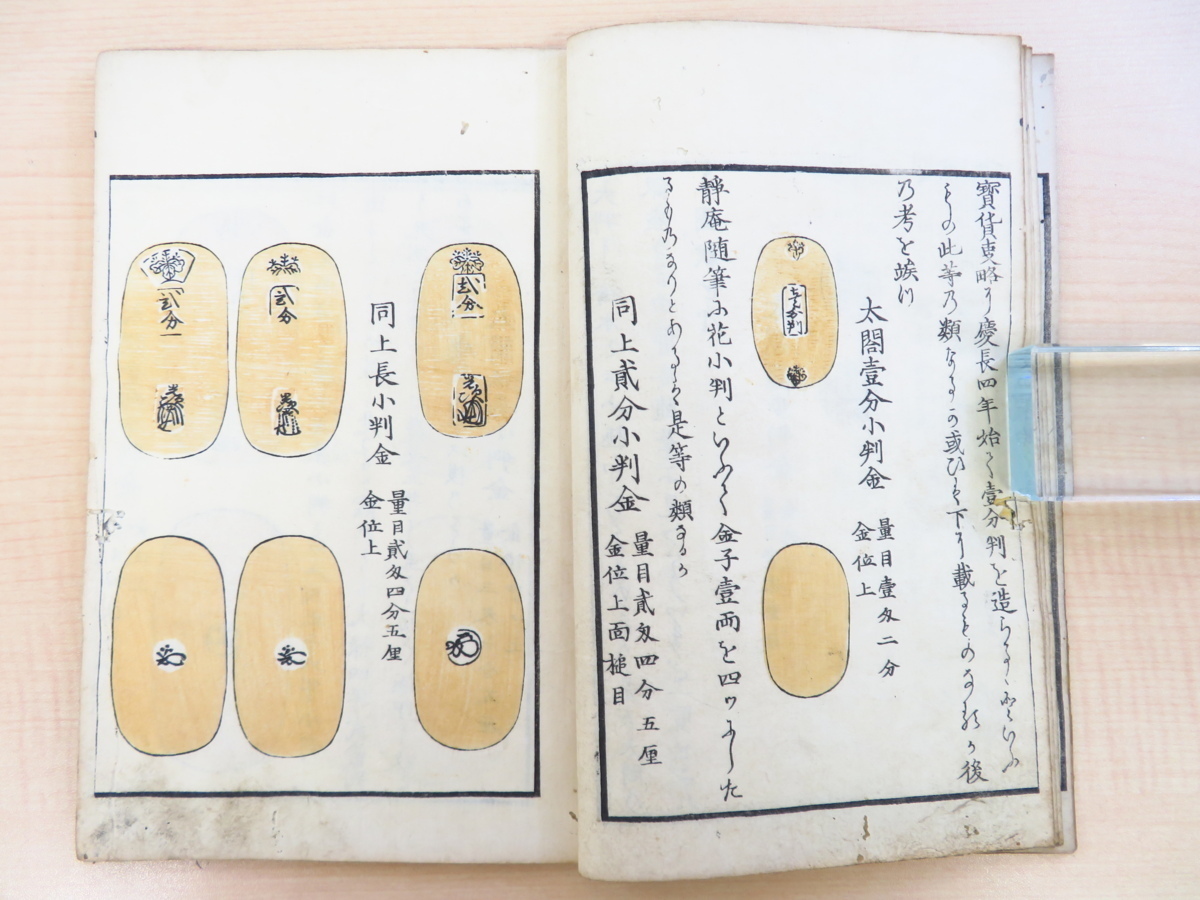 寶貨事略に慶長四年始て壹分判を造らるゝといふ
もの此等の類なるか或ひは下に載るものなるか後
乃考を俟つ
太閤壹分小判金
量目壹匁二分
金位上
壹分判
靜庵隨筆に花小判といふて金子壹両を四ツにした
るもの有りとあるは是等の類なるか
同上貳分小判金
量目貳匁四分五厘
金位上面槌目
同上長小判金
量目貳匁四分五厘
金位上
貳分